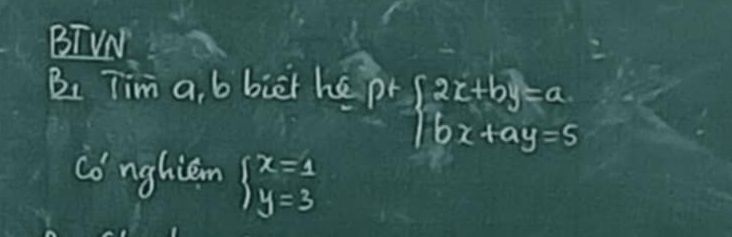 BTVN
B1 Tìm a, b biết hệ pt { 2x+by=a
bx+ay=5
Có nghiệm { x=1
y=3